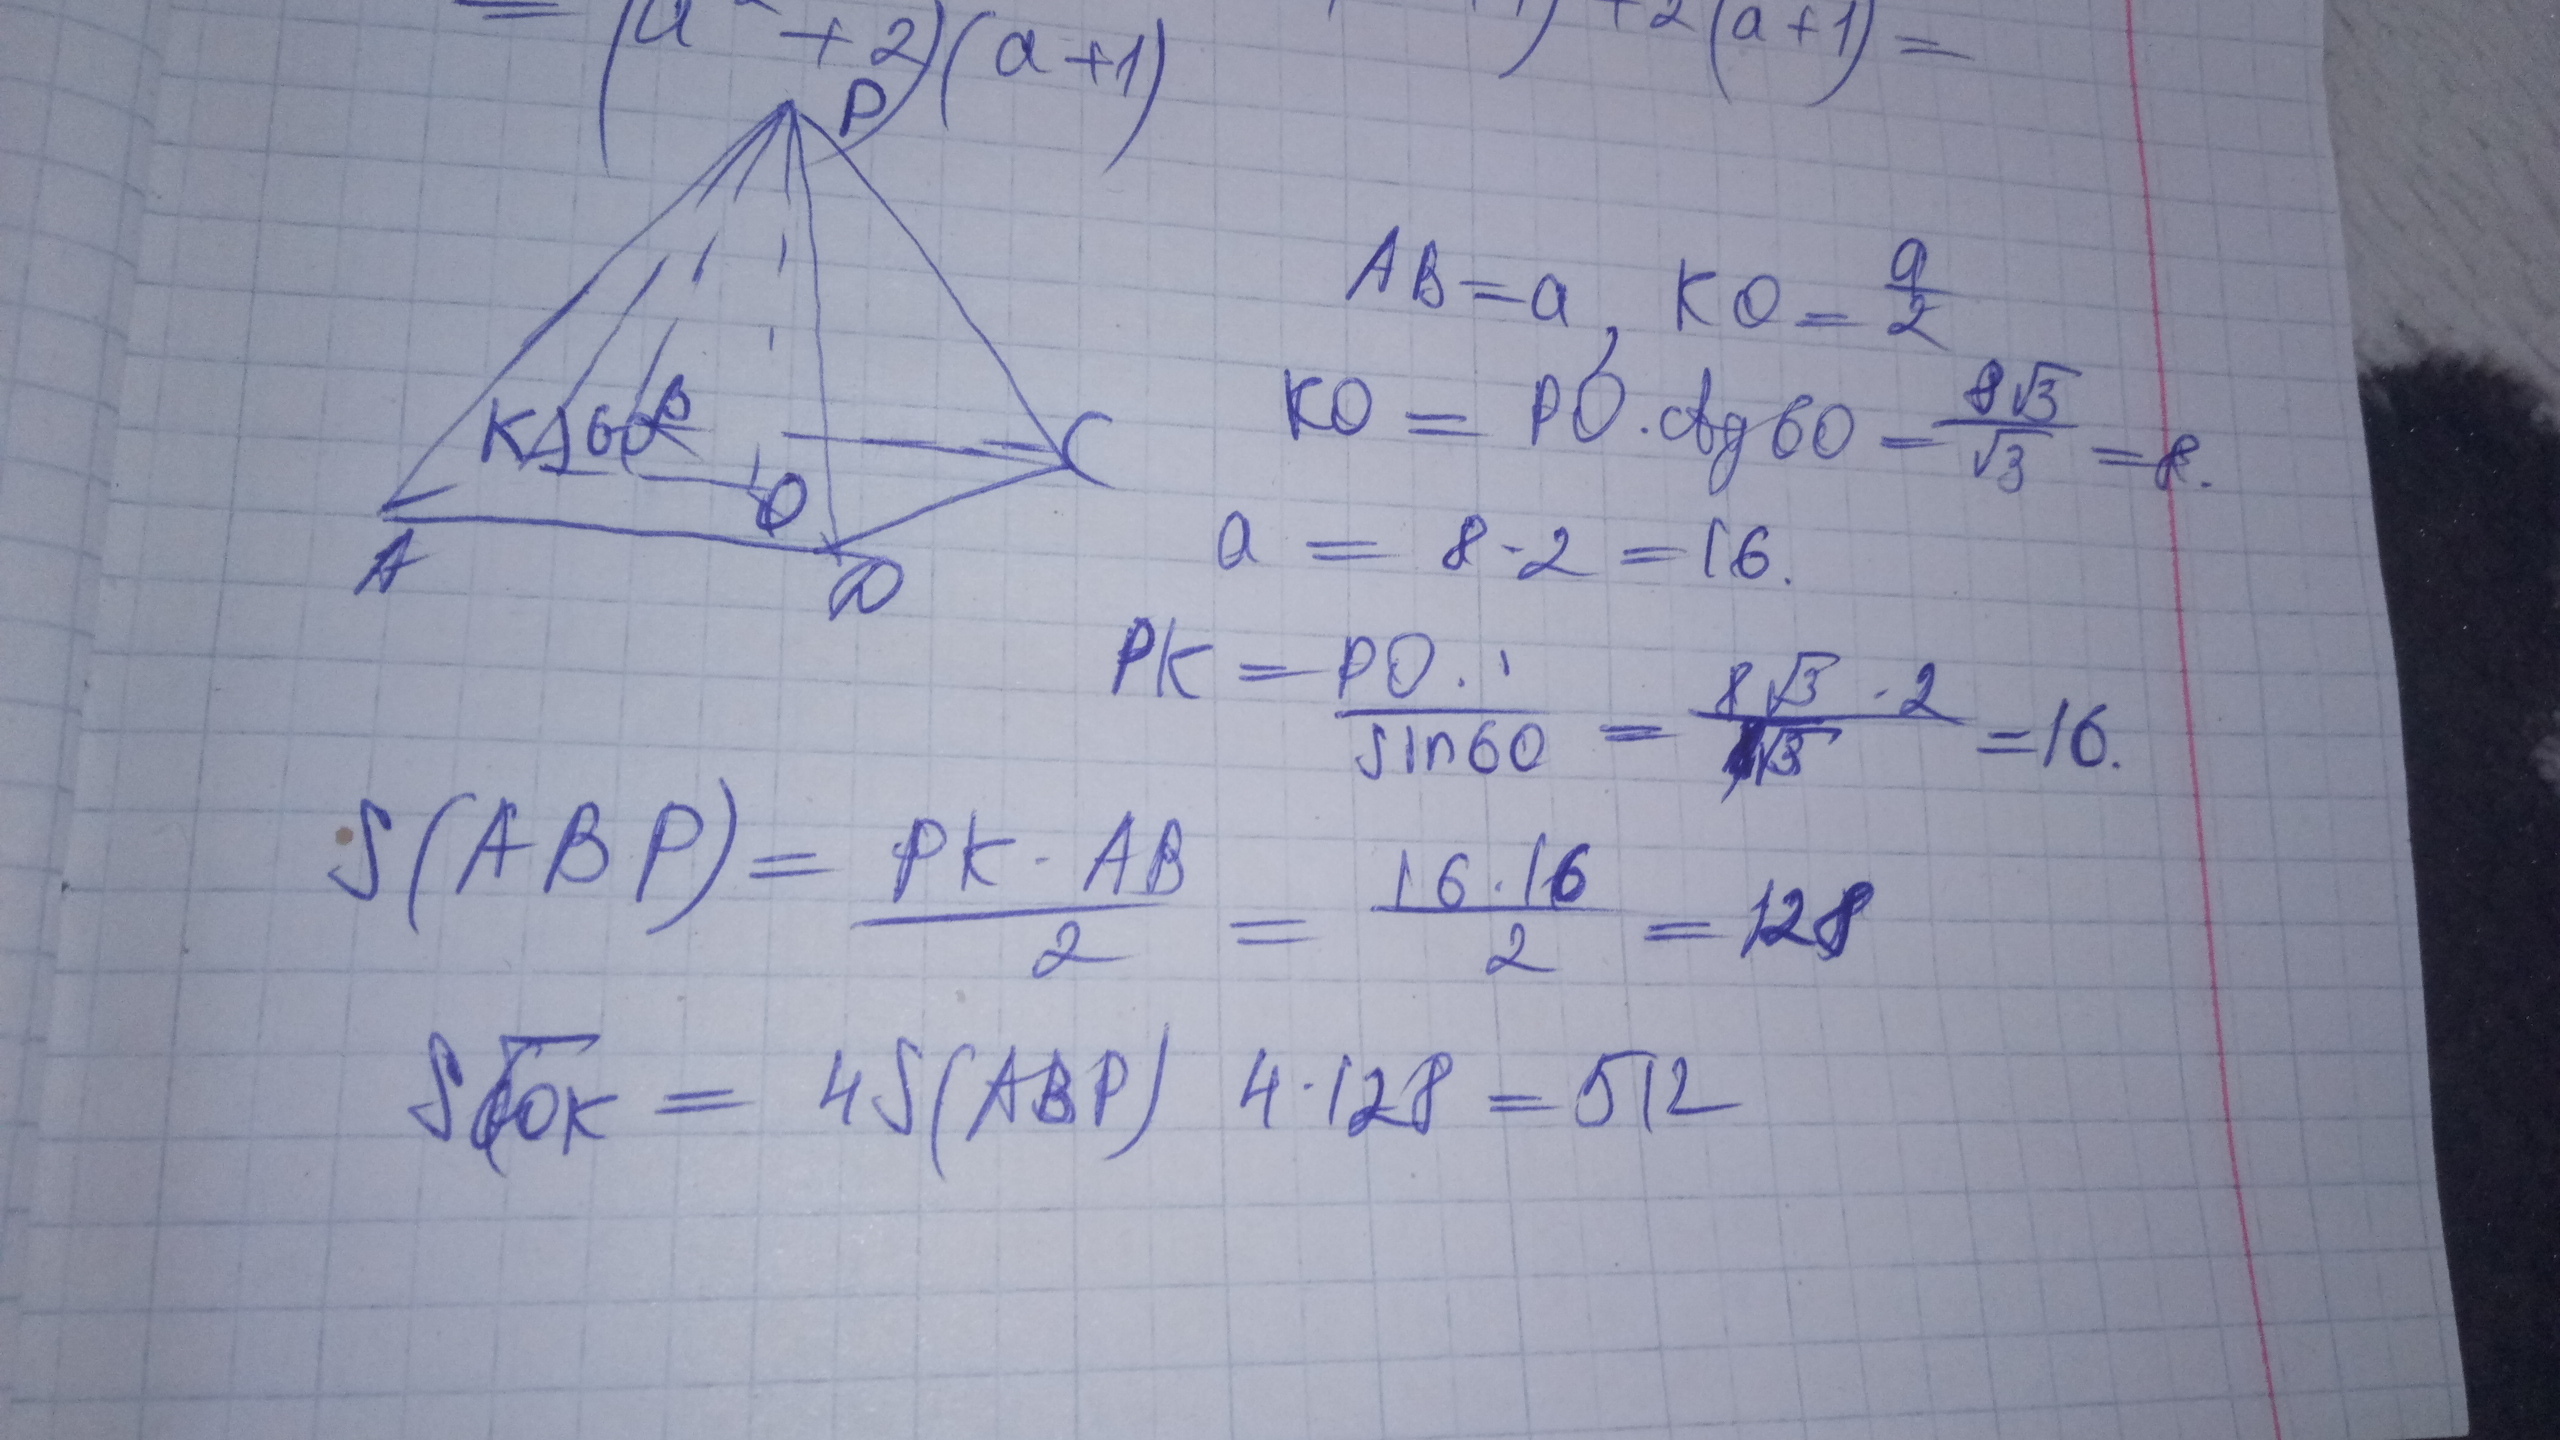 = (a² + 2)(a+1)
+2(a+1) =
P
K 60° B
O
C
A
D
AB = a, KO = a/2
KO = PO · ctg60 = 8√3/√3 = 8.
a = 8·2 = 16.
PK = PO/sin60 = 8√3·2/√3 = 16.
S(ABP) = PK·AB/2 = 16·16/2 = 128
Sбок = 4S(ABP) 4·128 = 512